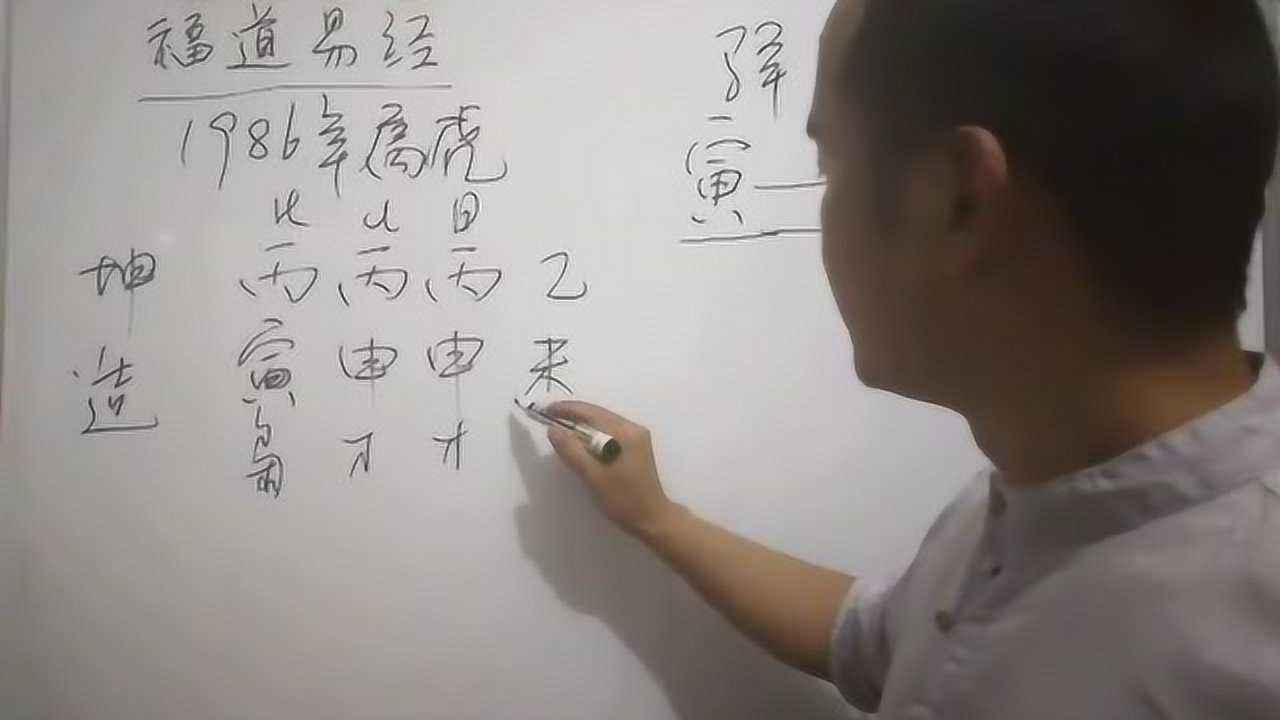 福道易经
1986年属虎
比 比 日
坤 丙 丙 丙 乙
造 寅 申 申 未
枭 才 才
寅一